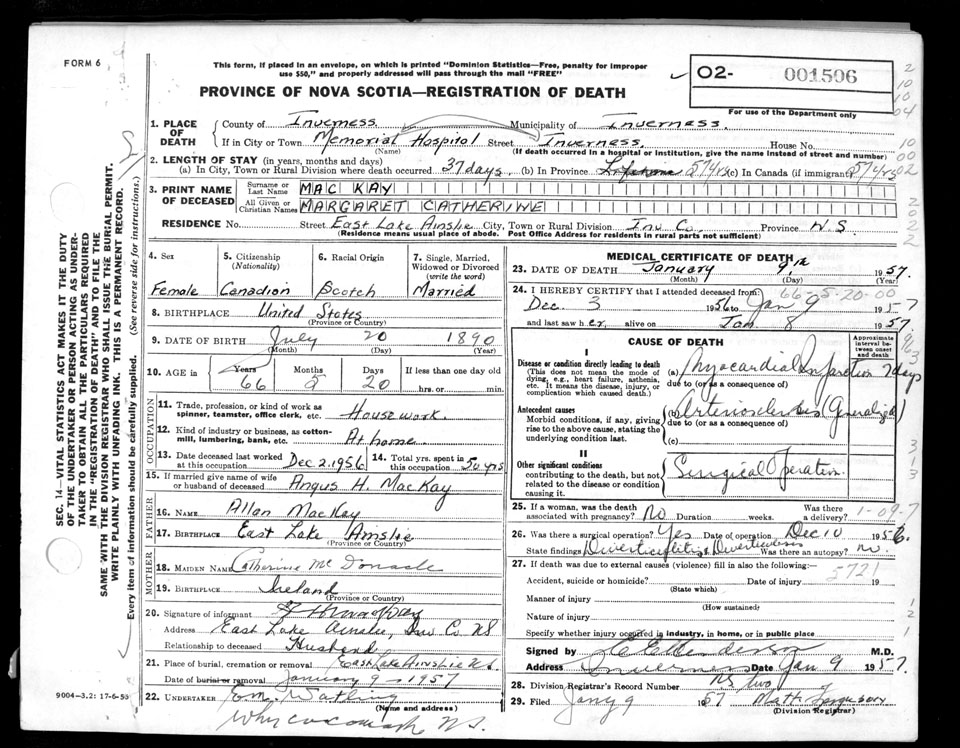 FORM 6
This form, if placed in an envelope, on which is printed "Dominion Statistics—Free, penalty for improper
use $50," and properly addressed will pass through the mail "FREE"
PROVINCE OF NOVA SCOTIA—REGISTRATION OF DEATH
02- 001506
For use of the Department only
1. PLACE OF DEATH { County of Inverness Municipality of Inverness
If in City or Town Memorial Hospital Street Inverness House No.
(Name) (If death occurred in a hospital or institution, give the name instead of street and number)
2. LENGTH OF STAY (in years, months and days)
(a) In City, Town or Rural Division where death occurred 37 days, (b) In Province 57 yrs (c) In Canada (if immigrant) 57 yrs
3. PRINT NAME OF DECEASED { Surname or Last Name MAC KAY
All Given or Christian Names MARGARET CATHERINE
RESIDENCE No. Street East Lake Ainslie City, Town or Rural Division Inv Co. Province N S.
(Residence means usual place of abode. Post Office Address for residents in rural parts not sufficient)
4. Sex 5. Citizenship (Nationality) 6. Racial Origin 7. Single, Married, Widowed or Divorced (write the word)
Female Canadian Scotch Married
8. BIRTHPLACE United States
(Province or Country)
9. DATE OF BIRTH July 20 1890
(Month) (Day) (Year)
10. AGE in Years Months Days If less than one day old
66 20 hrs. or min.
OCCUPATION
11. Trade, profession or kind of work as spinner, teamster, office clerk, etc. Housework
12. Kind of industry or business, as cotton-mill, lumbering, bank, etc. At home
13. Date deceased last worked at this occupation Dec 2. 1956 14. Total yrs. spent in this occupation 50 yrs
15. If married give name of wife or husband of deceased Angus H. MacKay
FATHER
16. NAME Allan MacKay
17. BIRTHPLACE East Lake Ainslie
(Province or Country)
MOTHER
18. MAIDEN NAME Catherine
19. BIRTHPLACE
(Province or Country)
20. Signature of informant
Address East Lake Ainslie, Inv Co. NS
Relationship to deceased Husband
21. Place of burial, cremation or removal East Lake Ainslie N.S.
Date of burial or removal January 9 - 1957
22. UNDERTAKER E.M. Watling
(Name and address)
Whycocomagh N.S.
9004-3.2: 17-6-55
MEDICAL CERTIFICATE OF DEATH
23. DATE OF DEATH January 9th 1957
(Month) (Day) (Year)
24. I HEREBY CERTIFY that I attended deceased from:
Dec. 3 1956 to Jan 9 1957
and last saw her alive on Jan. 8 1957
CAUSE OF DEATH
Approximate interval between onset and death
I
Disease or condition directly leading to death
(This does not mean the mode of dying, e.g., heart failure, asthenia, etc. It means the disease, injury, or complication which caused death.)
(a) Myocardial Infarction 7 days
due to (or as a consequence of)
Antecedent causes
Morbid conditions, if any, giving rise to the above cause, stating the underlying condition last.
(b) Arteriosclerosis (Generalized)
due to (or as a consequence of)
(c)
II
Other significant conditions contributing to the death, but not related to the disease or condition causing it.
Surgical Operation
25. If a woman, was the death associated with pregnancy? No Duration weeks. Was there a delivery?
26. Was there a surgical operation? Yes Date of operation Dec 10 1956.
State findings Diverticulitis & Diverticulosis Was there an autopsy? No.
27. If death was due to external causes (violence) fill in also the following:—
Accident, suicide or homicide? Date of injury 19
(State which)
Manner of injury
(How sustained)
Nature of injury
Specify whether injury occurred in industry, in home, or in public place
Signed by M.D.
Address Inverness Date Jan 9 1957.
28. Division Registrar's Record Number
29. Filed Jany 9 1957 Ferguson
(Division Registrar)
SEC. 14—VITAL STATISTICS ACT MAKES IT THE DUTY
OF THE UNDERTAKER OR PERSON ACTING AS UNDER-
TAKER TO OBTAIN ALL THE PARTICULARS REQUIRED
IN THE "REGISTRATION OF DEATH" AND TO FILE THE
SAME WITH THE DIVISION REGISTRAR WHO SHALL ISSUE THE BURIAL PERMIT.
WRITE PLAINLY WITH UNFADING INK. THIS IS A PERMANENT RECORD.
Every item of information should be carefully supplied. (See reverse side for instructions.)